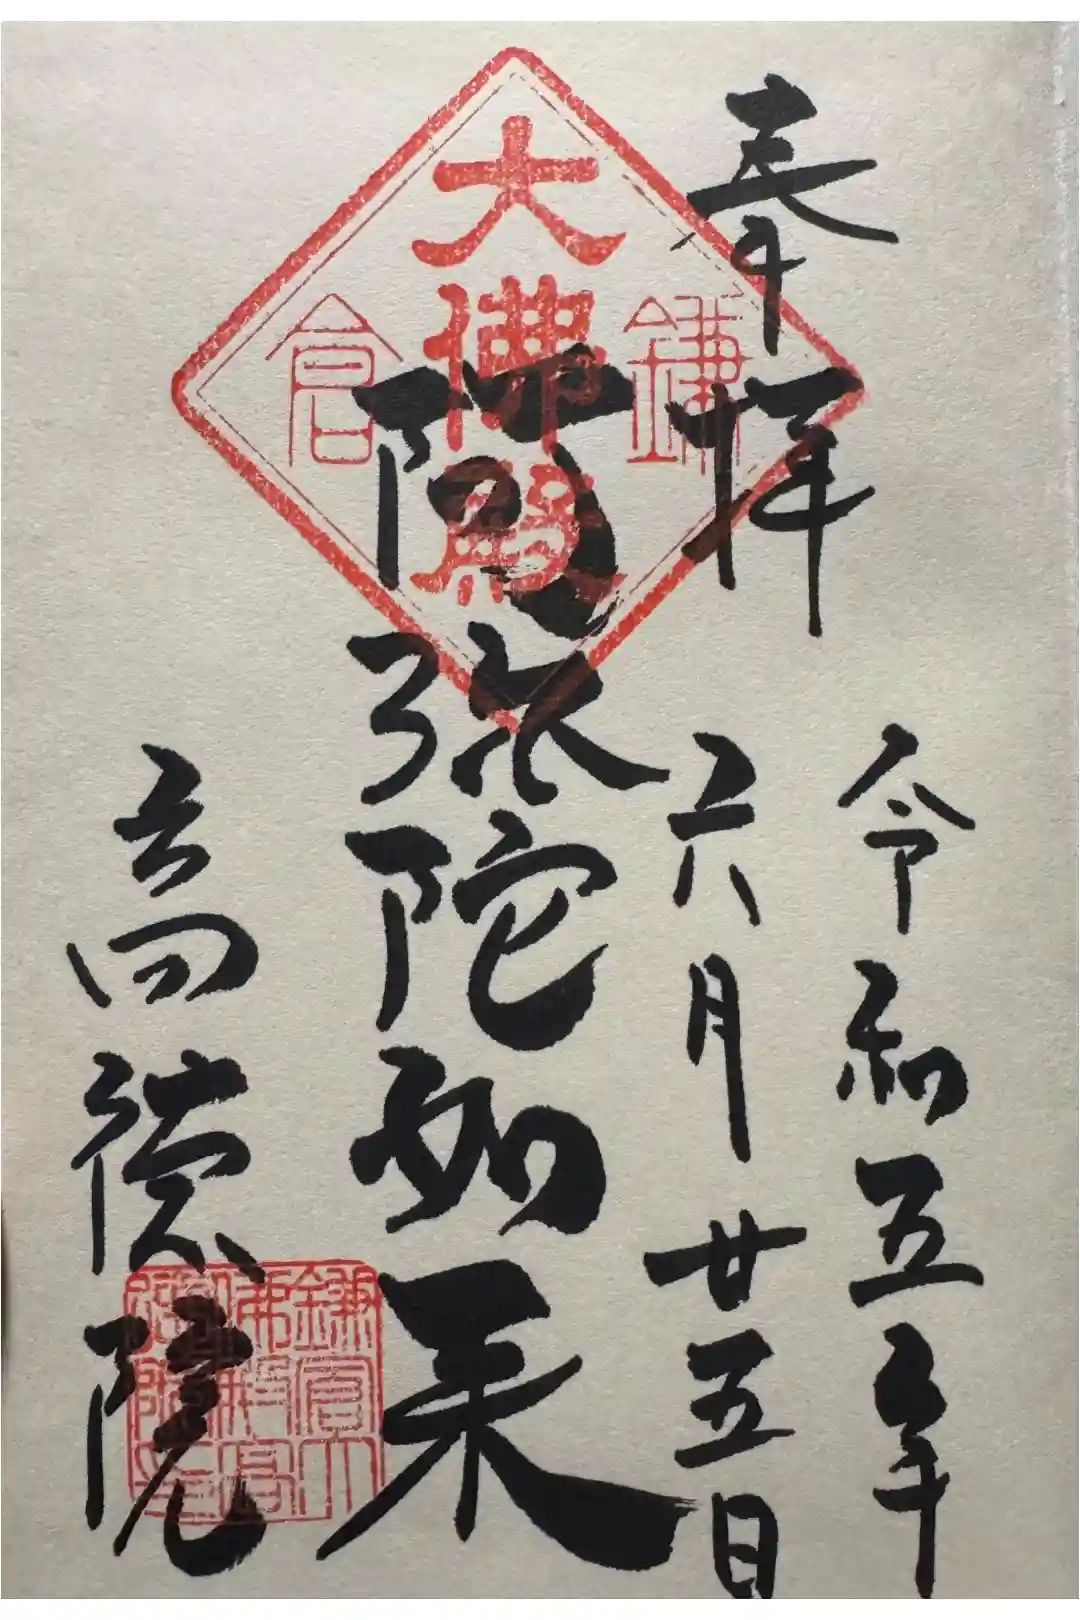 奉拝
令和五年
六月廿五日
阿弥陀如来
高徳院
大佛殿
鎌倉
鎌倉大佛殿高徳院